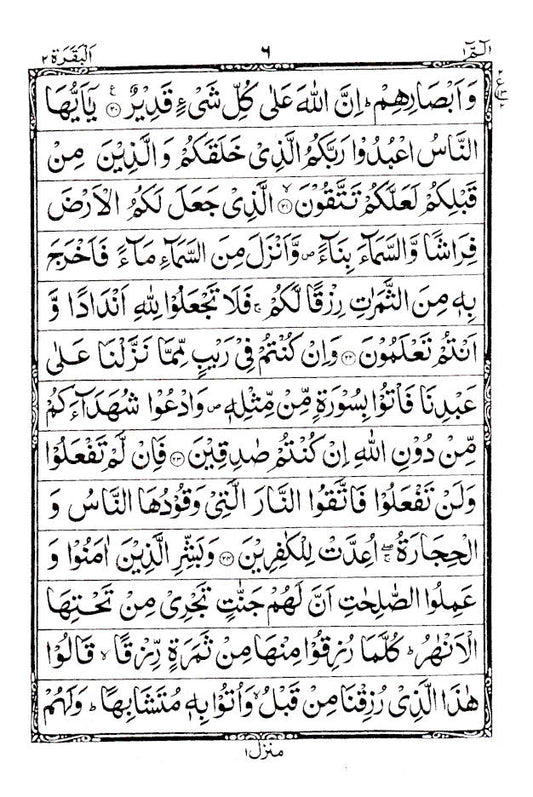 الٓمّٓ ١ ٦ الْبَقَرَة ٢
وَاَبْصَارِهِمْ ؕ اِنَّ اللّٰهَ عَلٰى كُلِّ شَیْءٍ قَدِیْرٌ ﴿۲۰﴾ یٰۤاَیُّهَا
النَّاسُ اعْبُدُوْا رَبَّكُمُ الَّذِیْ خَلَقَكُمْ وَالَّذِیْنَ مِنْ
قَبْلِكُمْ لَعَلَّكُمْ تَتَّقُوْنَ ﴿۲۱﴾ۙ الَّذِیْ جَعَلَ لَكُمُ الْاَرْضَ
فِرَاشًا وَّالسَّمَآءَ بِنَآءً ۪ وَّاَنْزَلَ مِنَ السَّمَآءِ مَآءً فَاَخْرَجَ
بِهٖ مِنَ الثَّمَرٰتِ رِزْقًا لَّكُمْ ۚ فَلَا تَجْعَلُوْا لِلّٰهِ اَنْدَادًا وَّ
اَنْتُمْ تَعْلَمُوْنَ ﴿۲۲﴾ وَاِنْ كُنْتُمْ فِیْ رَیْبٍ مِّمَّا نَزَّلْنَا عَلٰى
عَبْدِنَا فَاْتُوْا بِسُوْرَةٍ مِّنْ مِّثْلِهٖ ۪ وَادْعُوْا شُهَدَآءَكُمْ
مِّنْ دُوْنِ اللّٰهِ اِنْ كُنْتُمْ صٰدِقِیْنَ ﴿۲۳﴾ فَاِنْ لَّمْ تَفْعَلُوْا
وَلَنْ تَفْعَلُوْا فَاتَّقُوا النَّارَ الَّتِیْ وَقُوْدُهَا النَّاسُ وَ
الْحِجَارَةُ ۖۚ اُعِدَّتْ لِلْكٰفِرِیْنَ ﴿۲۴﴾ وَبَشِّرِ الَّذِیْنَ اٰمَنُوْا وَ
عَمِلُوا الصّٰلِحٰتِ اَنَّ لَهُمْ جَنّٰتٍ تَجْرِیْ مِنْ تَحْتِهَا
الْاَنْهٰرُ ؕ كُلَّمَا رُزِقُوْا مِنْهَا مِنْ ثَمَرَةٍ رِّزْقًا ۙ قَالُوْا
هٰذَا الَّذِیْ رُزِقْنَا مِنْ قَبْلُ ۙ وَاُتُوْا بِهٖ مُتَشَابِهًا ؕ وَلَهُمْ
منزل ١